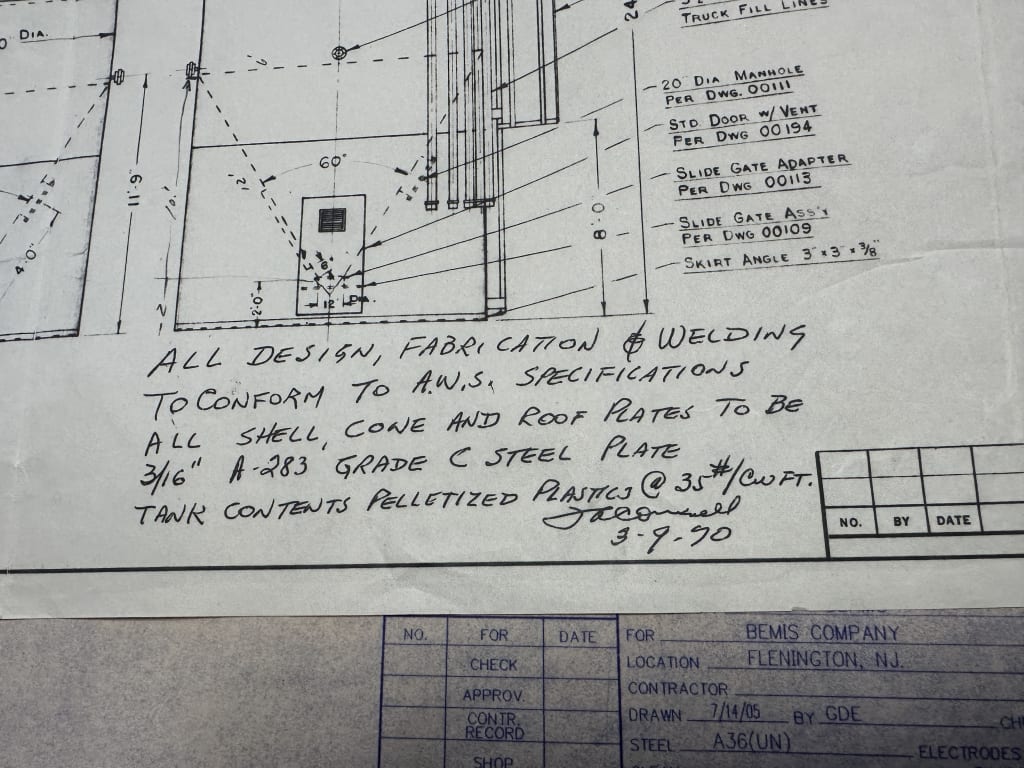 DIA.
TRUCK FILL LINES
20" DIA MANHOLE
PER DWG. 00111
STD DOOR W/ VENT
PER DWG 00194
SLIDE GATE ADAPTER
PER DWG 00113
SLIDE GATE ASS'Y
PER DWG 00109
SKIRT ANGLE 3" x 3" x 3/8"
60°
11'-9"
8'-0
4'-0"
2'-0"
12
ALL DESIGN, FABRICATION & WELDING
TO CONFORM TO A.W.S. SPECIFICATIONS
ALL SHELL, CONE AND ROOF PLATES TO BE
3/16" A-283 GRADE C STEEL PLATE
TANK CONTENTS PELLETIZED PLASTICS @ 35#/CU FT.
3-9-90
NO. BY DATE
NO. FOR DATE
CHECK
APPROV.
CONTR. RECORD
SHOP
FOR BEMIS COMPANY
LOCATION FLENINGTON, NJ.
CONTRACTOR
DRAWN 7/14/05 BY GDE
STEEL A36(UN) ELECTRODES